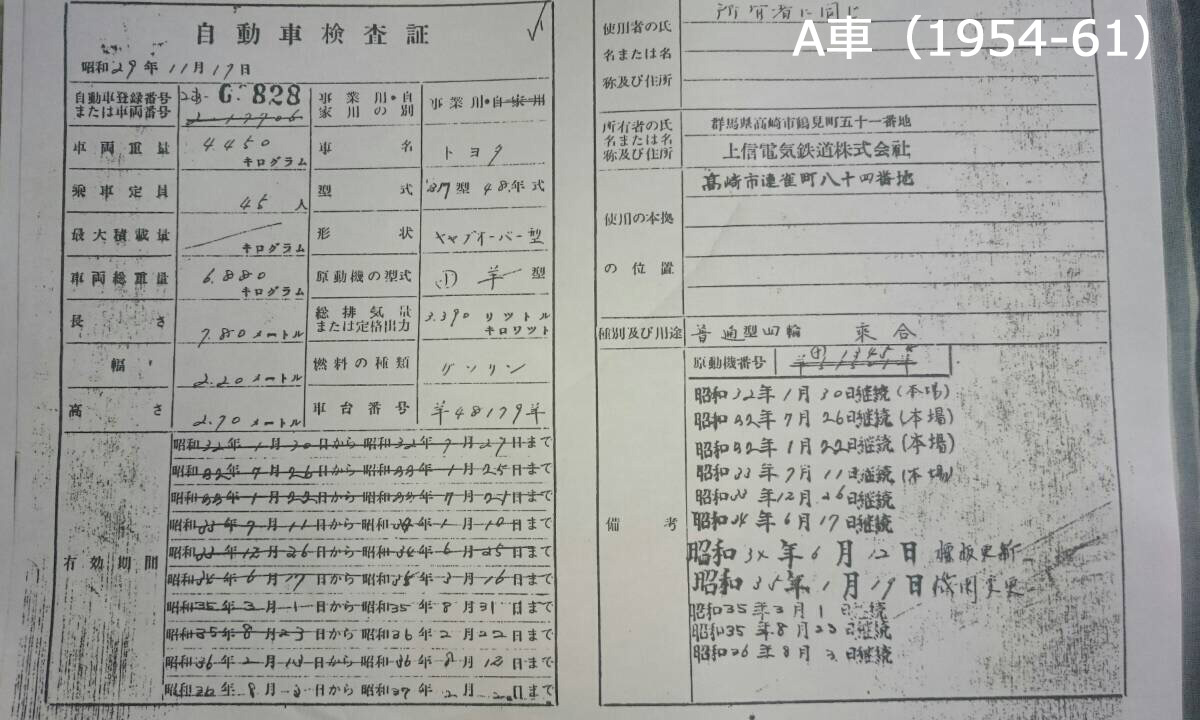 A車（1954-61）
自動車検査証
昭和29年11月17日
自動車登録番号
または車両番号
G. 828
事業用・自
家用の別
事業用・自家用
車両重量
4.450
キログラム
車名
トヨタ
乗車定員
45人
型式
型48年式
最大積載量
キログラム
形状
キャブオーバー型
車両総重量
6.880
キログラム
原動機の型式
型
長さ
7.80メートル
総排気量
または定格出力
3.390リツトル
キロワツト
幅
2.20メートル
燃料の種類
ガソリン
高さ
2.70メートル
車台番号
48179
有効期間
昭和32年1月30日から昭和32年7月29日まで
昭和32年7月26日から昭和33年1月25日まで
昭和33年1月22日から昭和33年7月21日まで
昭和33年7月11日から昭和34年1月10日まで
昭和33年12月26日から昭和34年6月25日まで
昭和34年6月17日から昭和35年3月16日まで
昭和35年3月1日から昭和35年8月31日まで
昭和35年8月23日から昭和36年2月22日まで
昭和36年2月13日から昭和36年8月12日まで
昭和36年8月3日から昭和37年2月2日まで
使用者の氏
名または名
称及び住所
所有者に同じ
所有者の氏
名または名
称及び住所
群馬県高崎市鶴見町五十一番地
上信電気鉄道株式会社
使用の本拠
の位置
高崎市連雀町八十四番地
種別及び用途
普通型四輪 乗合
備考
原動機番号
昭和32年1月30日継続(本場)
昭和32年7月26日継続(本場)
昭和32年1月22日継続(本場)
昭和33年7月11日継続(本場)
昭和33年12月26日継続
昭和34年6月17日継続
昭和34年6月12日
昭和35年1月19日機関変更
昭和35年3月1日継続
昭和35年8月23日継続
昭和36年8月3日継続